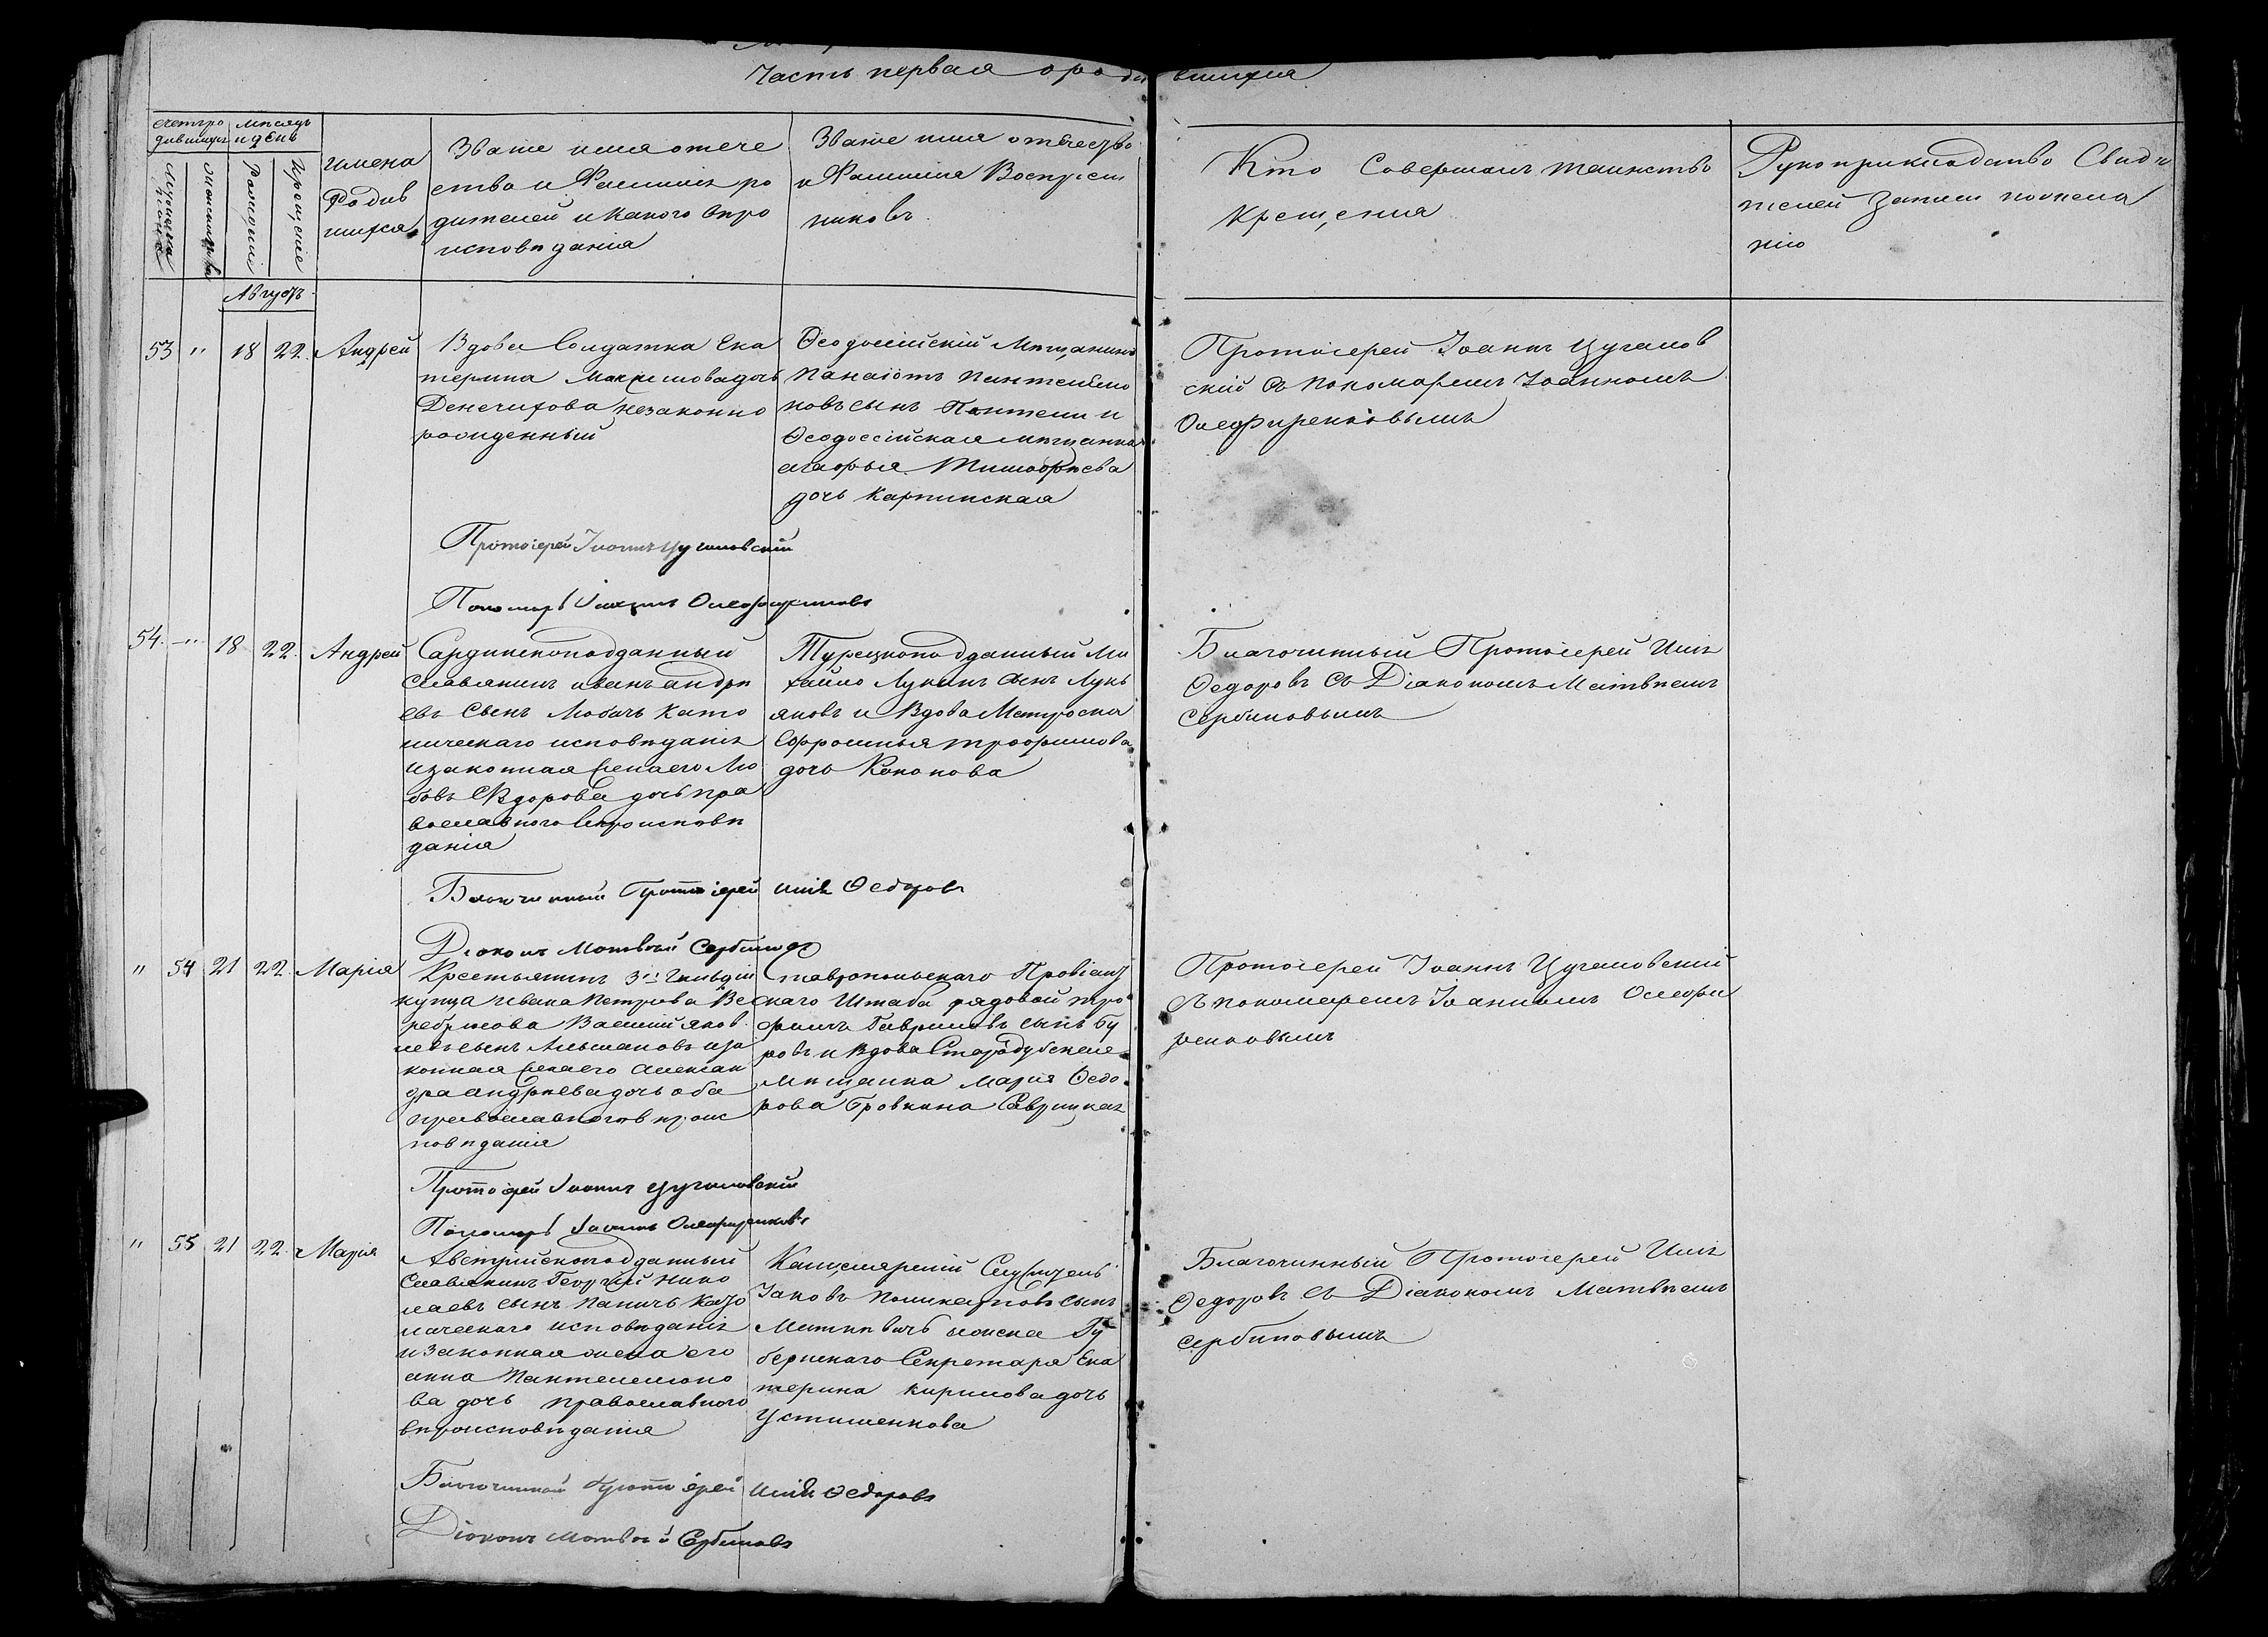 Часть первая о родившихся
счетъ ро
дившихся
месяцъ
и день
Мужеска
пола
Женска
Рождения
Крещение
имена
Родив
шихся
Звание имя отече
ство и Фамилия ро
дителей и какого веро
исповѣдания
Звание имя отечество
и Фамилия Восприем
никовъ
Кто Совершалъ таинство
Крещения
Рукоприкладство Свидѣ
телей записи по жела
нию
Августъ
53 " 18 22 Андрей
Вдова Солдатка Ека
терина Максимова дочь
незаконно
рожденный
Ѳеодосійскій Мѣщанинъ
Панаіотъ
новъ сынъ и
Ѳеодосійская мѣщанка
Марья Тимофѣева
дочь Карпинская
Протоіерей Іоаннъ Цугалов
скій съ пономаремъ Іоанномъ
Олефиренковымъ
Протоіерей Іоаннъ Цугаловскій
Пономарь Іоаннъ Олефиренковъ
54 " 18 22 Андрей
Сардинскоподданный
Славянинъ иванъ андрѣ
евъ Сынъ Лобачь като
лическаго исповѣданія
и законная жена его Лю
бовь Ѳедорова дочь пра
вославного вероисповѣ
данія
Турецкоподданный Ми
хайло Лукинъ сынъ Лукь
яновъ и Вдова Матроска
Ефросинья трофимова
дочь Кононова
Благочинный Протоіерей Илія
Ѳедоровъ съ Діакономъ Матвѣемъ
Сербиновымъ
Благочинный Протоіерей Илія Ѳедоровъ
Діаконъ Матвѣй Сербиновъ
" 54 21 22 Марія
Крестьянинъ 3й Гильдіи
купца Ивана Петрова Ве
ребрюсова Василій яков
левъ сынъ и за
конная жена его алексан
дра андрѣева дочь оба
православного вероис
повѣданія
Ставропольскаго Провіант
скаго Штата рядовой тро
фимъ Гавриловъ сынъ Бу
ровъ и вдова Стародубская
Мѣщанка Марія Ѳедо
рова
Протоіерей Іоаннъ Цугаловскій
съ пономаремъ Іоанномъ Олефи
ренковымъ
Протоіерей Іоаннъ Цугаловскій
Пономарь Іоаннъ Олефиренковъ
" 55 21 22 Марія
Австрійскоподданный
Славянинъ Георгій Нико
лаевъ сынъ Паничь Като
лическаго исповѣданія
и законная жена его
анна Пантелеимоно
ва дочь православного
вѣроисповѣданія
Канцелярскій Служитель
Іаковъ Поликарповъ сынъ
Миткевичь и жена Гу
бернскаго Секретаря Ека
терина Кирилова дочь
Устименкова
Благочинный Протоіерей Илія
Ѳедоровъ съ Діакономъ Матвѣемъ
Сербиновымъ
Благочинный Протоіерей Илія Ѳедоровъ
Діаконъ Матвѣй Сербиновъ